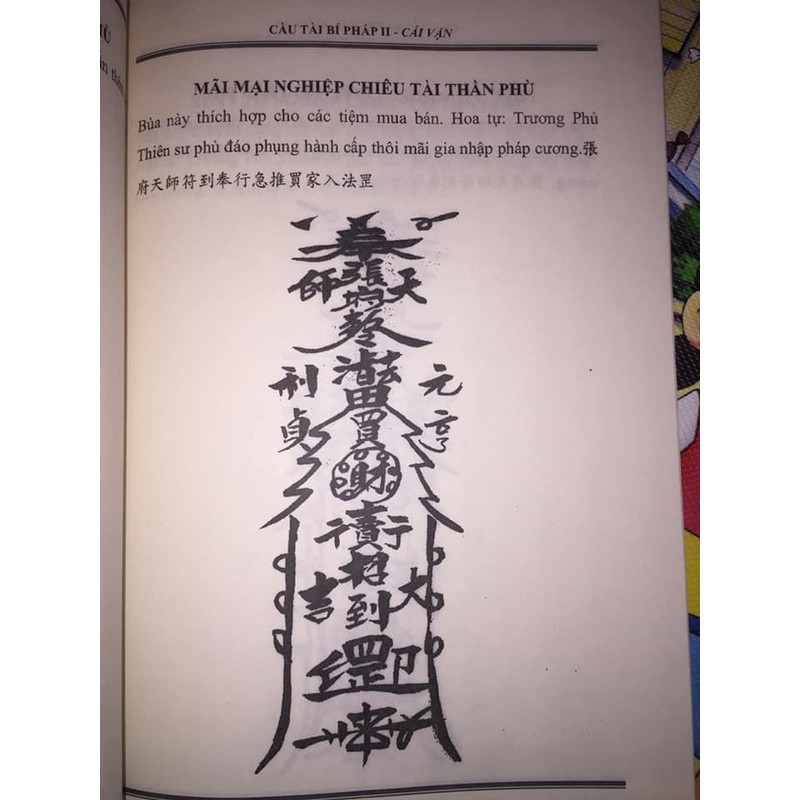 CẦU TÀI BÍ PHÁP II - CẢI VẬN
MÃI MẠI NGHIỆP CHIÊU TÀI THẦN PHÙ
Bùa này thích hợp cho các tiệm mua bán. Hoa tự: Trương Phủ
Thiên sư phù đáo phụng hành cấp thôi mãi gia nhập pháp cương.張
府天師符到奉行急推買家入法罡
奉
師 張 天
府
利 元
貞 亨
買
行 賣 行
招
吉 到 大
罡